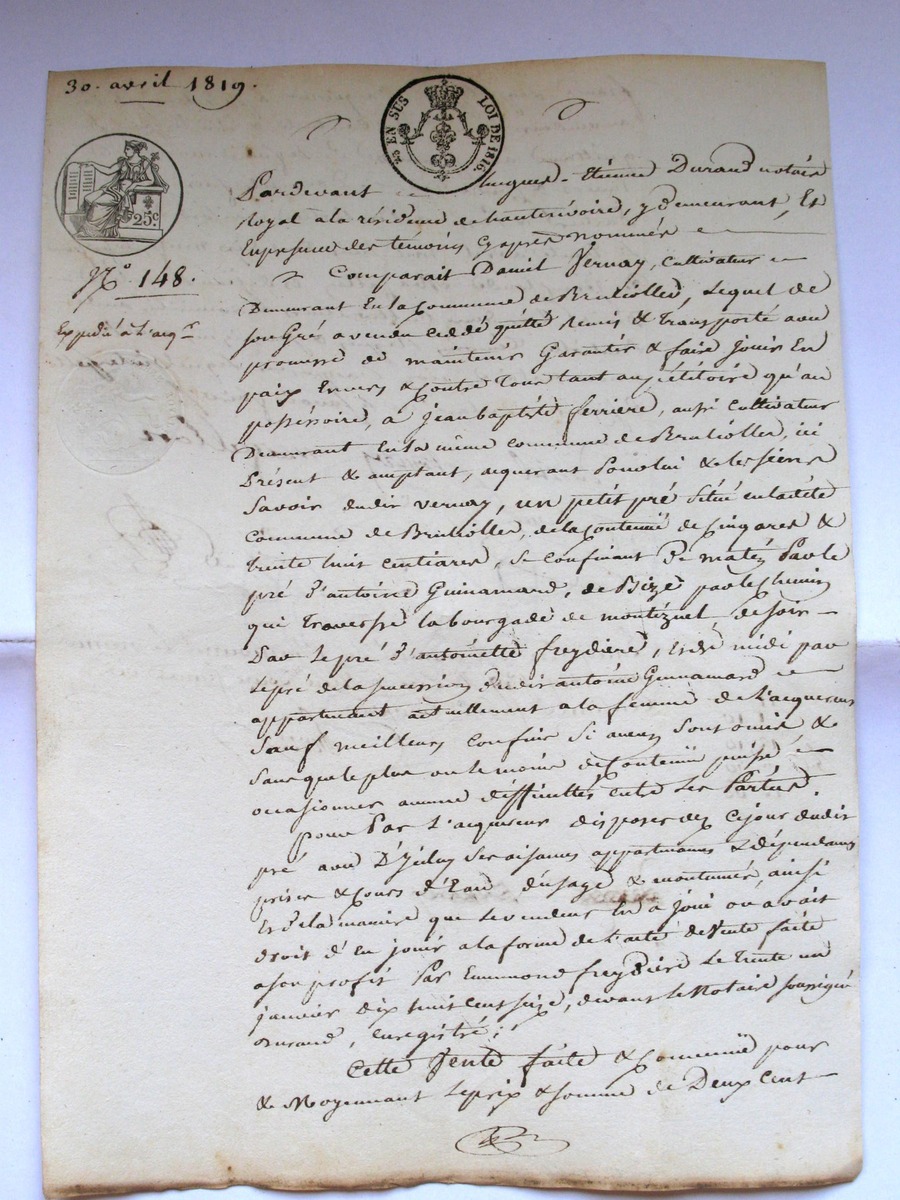 30. avril 1819.
EN SUS LOI DE 1816.
25c
N.o 148.
Expédié à L'acq.r
Pardevant hugues-Etienne Durand notaire
Royal a la résidence de hauterivoire, y demeurant, Et
En presence des temoins cy après nommés
Comparait Daniel Vernay, Cultivateur
Demeurant En la Commune de Brulliolles, Lequel de
son Gré a vendu cédé quitté remis & Transporté avec
promesse de maintenir Garantir & faire jouir En
paix Envers & Contre Tous tant au pétitoire qu'au
possessoire, a jean baptiste ferriere, aussi Cultivateur
Demeurant En la même commune de Brulliolles, ici
Présent & acceptant, acquerant Pour lui & les siens
Savoir dudit vernay, un petit pré Situé en ladite
Commune de Brulliolles, de la Contenue de Cinq ares &
Trente huit centiares, Se Confinant De matin Par le
pré d'antoine Guinamard, de Bize par le chemin
qui Traverse la bourgade de montézuel, de soir
Par le pré d'antoinette freydiere, Et de midi par
le pré de la succession dudit antoine Guinamard
appartenant actuellement a la femme de L'acquereur
Sauf meilleurs Confins Si aucuns Sont omis &
Sans que le plus ou le moins de Contenue puisse
occasionner aucune difficultés entre Les Parties.
pour Par L'acquereur disposer dez Ce jour dudit
pré avec D'Icelui Ses aisances appartenances & dépendances
prises & Cours d'Eau d'usage & Coutumes, ainsi
Et de la maniere que le vendeur En a joui ou avait
droit d'En jouir a la forme de L'acte de Vente faite
a son profit Par Enemond freydiere Le Trente un
janvier dix huit Cent seize, devant le Notaire soussigné
Durand, Enregistré;
Cette Vente faite & Convenue pour
& Moyennant Le prix & somme de Deux Cent